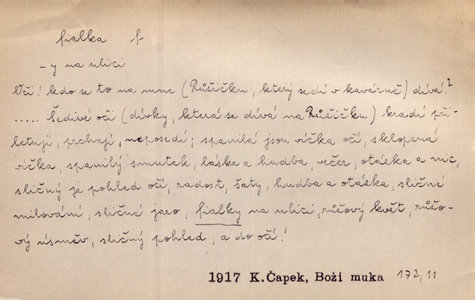 fialka f
- y na ulici
Oči! kdo se to na mne (Růžičku, který sedí v kavárně) dívá?
..... Šedivé oči (dívky, která se dívá na Růžičku) kradí při-
letují, prchají, neposedí; spanilá jsou víčka očí, sklopená
víčka, spanilý smutek, láska a hudba, večer, otázka a nic,
sličný je pohled očí, radost, šaty, hudba a otázka, sličné
milování, sličné jaro, fialky na ulici, růžový květ, růžo-
vý úsměv, sličný pohled, a do očí!
1917 K.Čapek, Boží muka 172,11